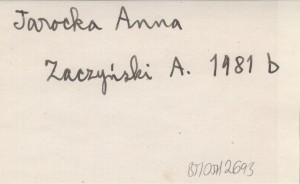 Jarocka Anna
Zaczyński A. 1981 b
BJ/OD/2693